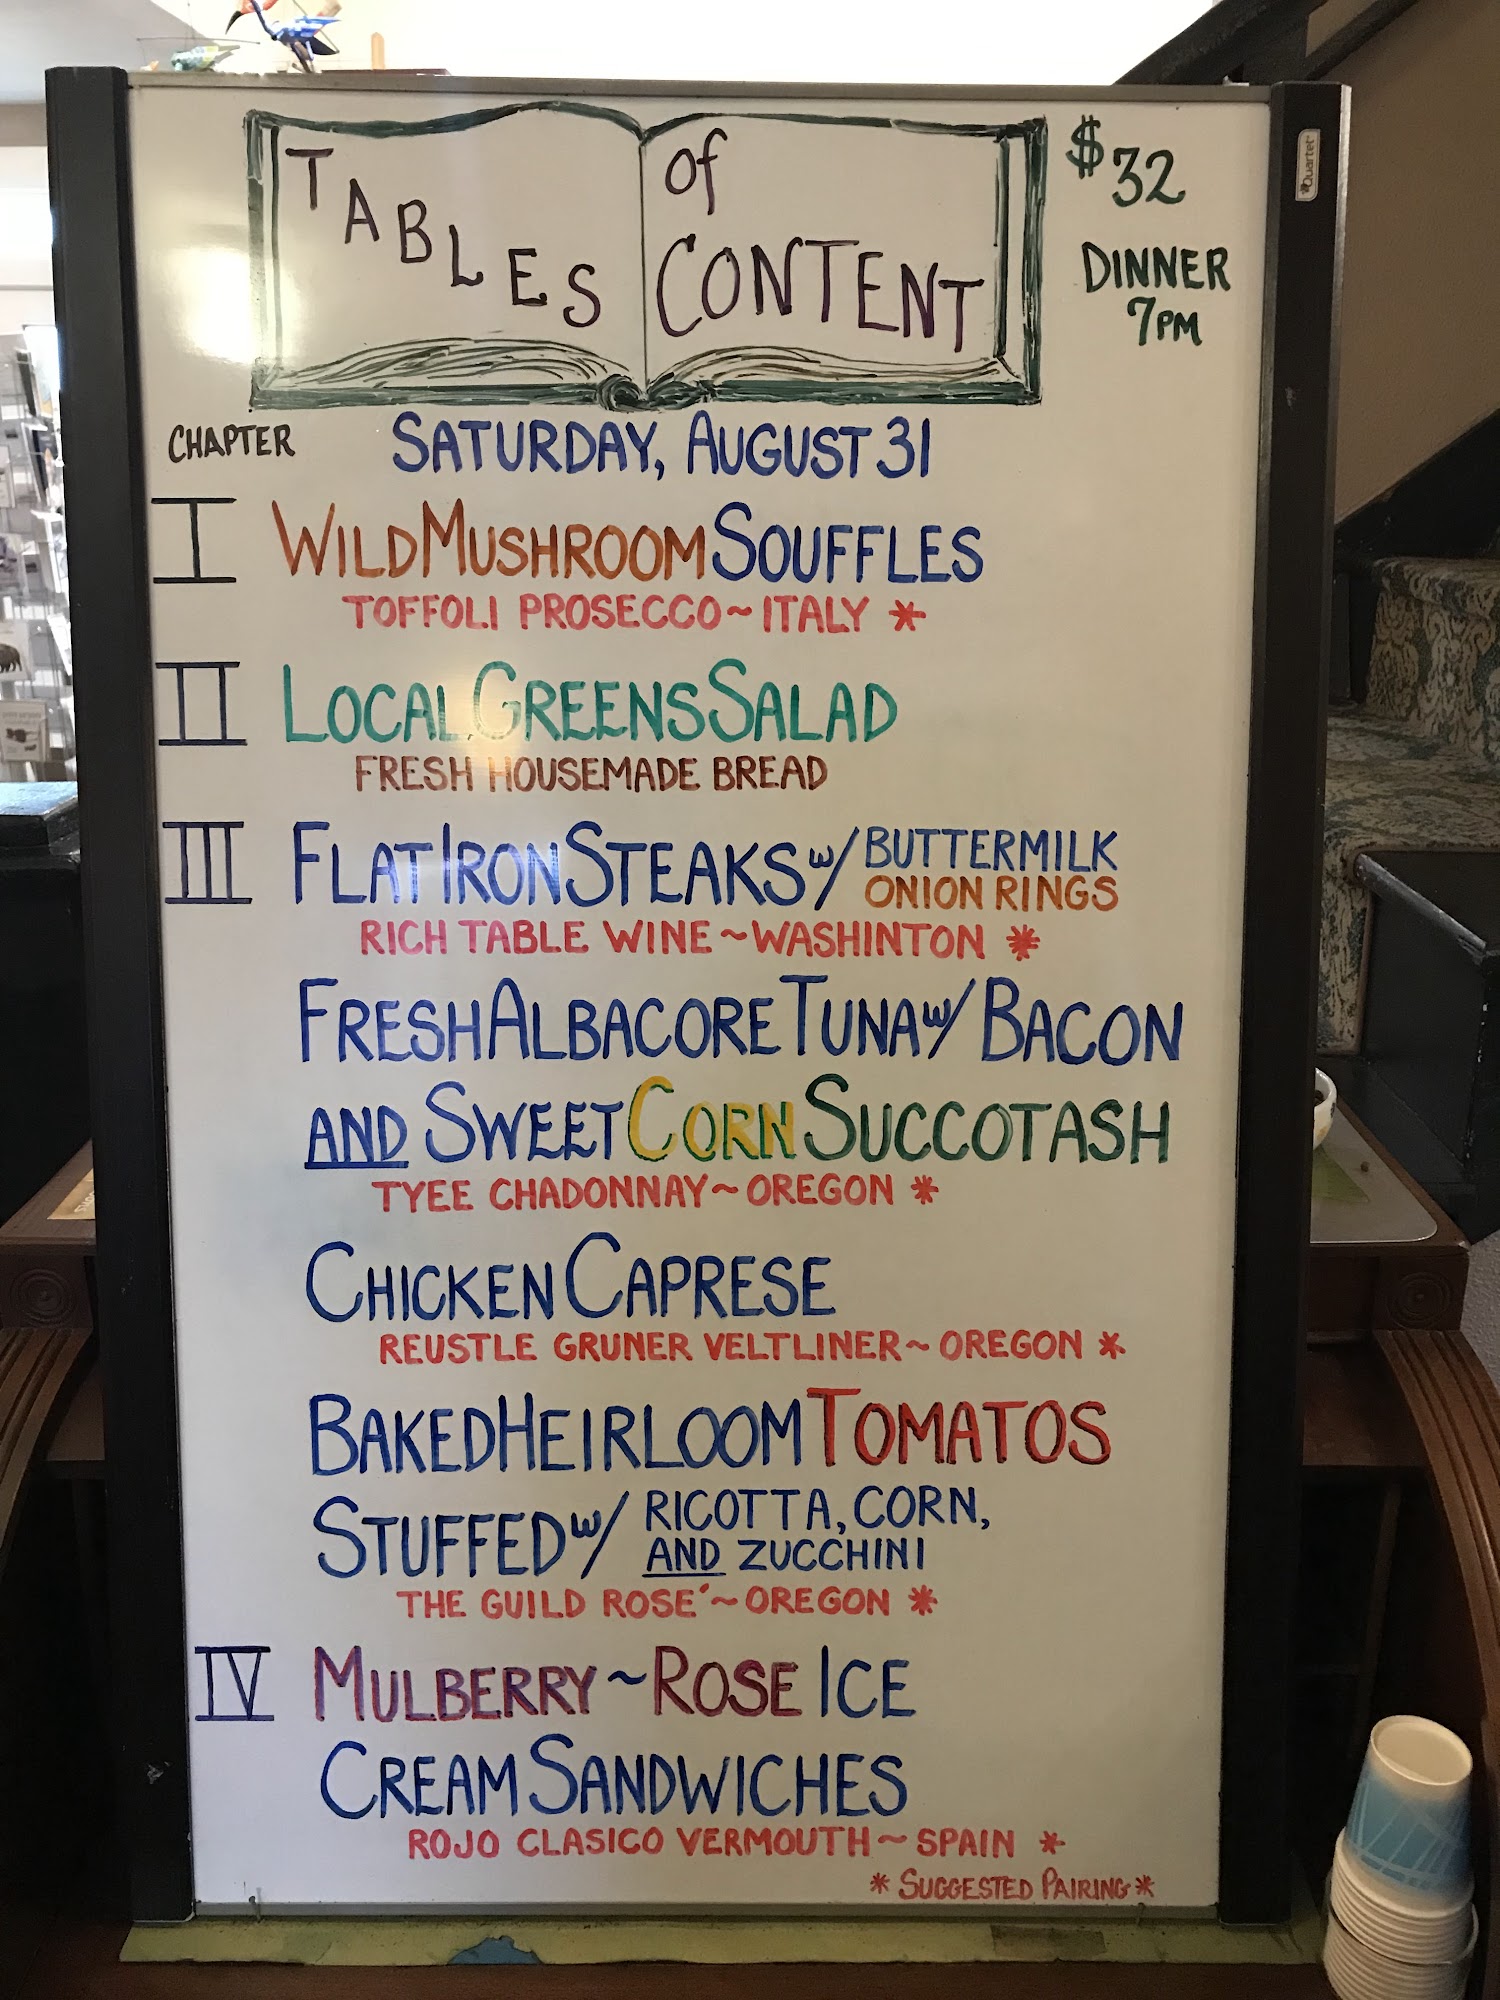 TABLES of CONTENT
$32
DINNER
7PM
Quartet
CHAPTER
SATURDAY, AUGUST 31
I WILD MUSHROOM SOUFFLES
TOFFOLI PROSECCO~ITALY *
II LOCAL GREENS SALAD
FRESH HOUSEMADE BREAD
III FLAT IRON STEAKS w/ BUTTERMILK
ONION RINGS
RICH TABLE WINE~WASHINTON *
FRESH ALBACORE TUNA w/ BACON
AND SWEET CORN SUCCOTASH
TYEE CHADONNAY~OREGON *
CHICKEN CAPRESE
REUSTLE GRUNER VELTLINER~OREGON *
BAKED HEIRLOOM TOMATOS
STUFFED w/ RICOTTA, CORN,
AND ZUCCHINI
THE GUILD ROSE´~OREGON *
IV MULBERRY~ROSE ICE
CREAM SANDWICHES
ROJO CLASICO VERMOUTH~SPAIN *
* SUGGESTED PAIRING *